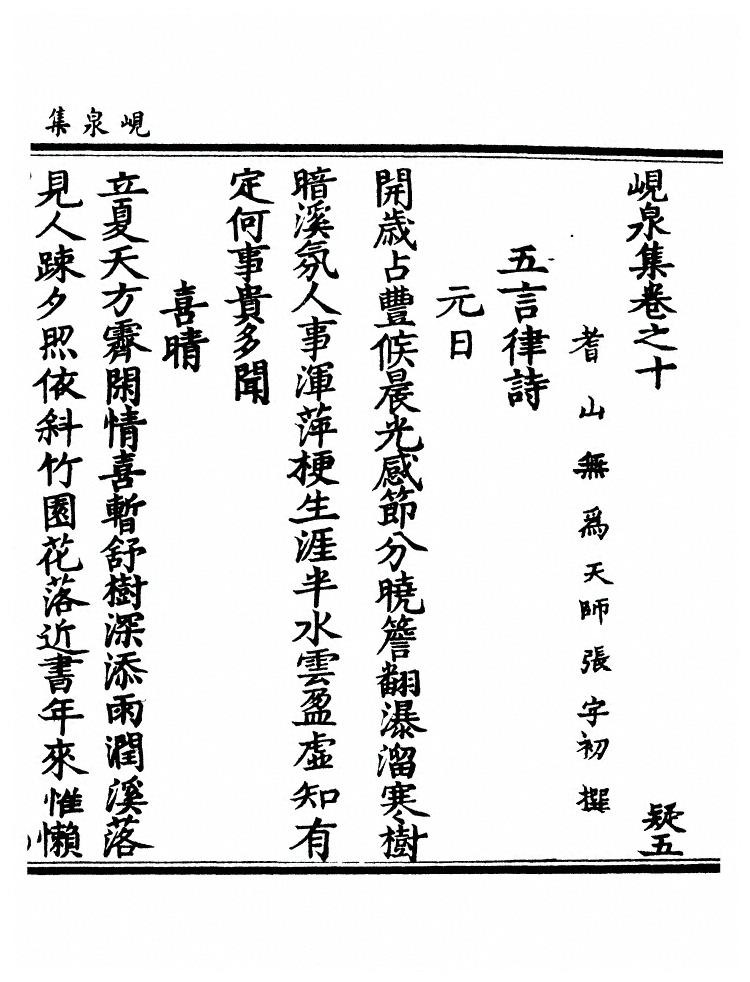 峴泉集
峴泉集卷之十
疑五
耆山無爲天師張宇初撰
五言律詩
元日
開歲占豐候晨光感節分曉簷翻瀑溜寒樹
暗溪氛人事渾萍梗生涯半水雲盈虛知有
定何事貴多聞
喜晴
立夏天方霽閑情喜暫舒樹深添雨潤溪落
見人踈夕照依斜竹園花落近書年來惟懶